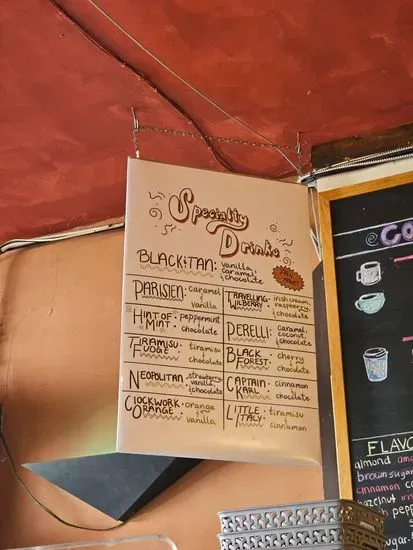 Specialty
Drinks
BLACK & TAN: vanilla
caramel &
chocolate
PARISIEN: caramel
& vanilla
TRAVELLING WILBERRY: irish cream,
raspberry &
chocolate
HINT OF MINT: peppermint
chocolate
PERELLI: caramel,
coconut, &
chocolate
TIRAMISU FUDGE: tiramisu
chocolate
BLACK FOREST: cherry
chocolate
NEOPOLITAN: strawberry
vanilla
& chocolate
CAPTAIN KARL: cinnamon
& chocolate
CLOCKWORK ORANGE: orange
& vanilla
LITTLE ITALY: tiramisu
& cinnamon
CO
FLAVO
almond
brown sugar
cinnamon